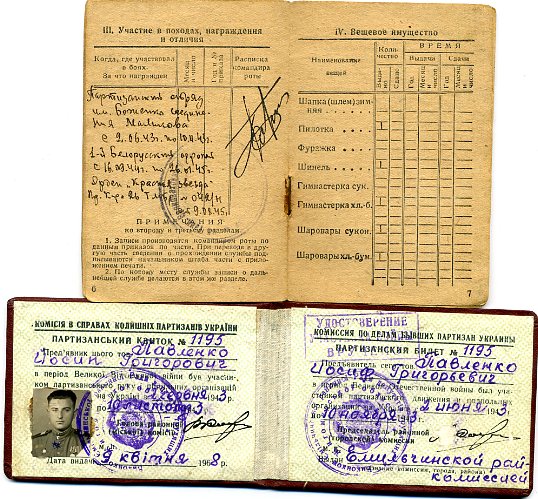 III. Участие в походах, награждения и отличия
Когда, где участвовал в боях.
За что награжден
Месяц и число
Год и № приказа
Расписка командира роты
Партизанский отряд
им. Боженко соедине-
ния Маликова
с 2.06.43г. по
1-й Белорусский фронт
с
Орден "Красная звезда"
ПРИМЕЧАНИЯ
ко второму и третьему разделам
1. Записи производятся командиром роты по
данным приказов по части. При переводе в дру-
гую часть сведения о прохождении службы под-
писываются начальником штаба части с прило-
жением печати.
2. По новому месту службы записи о даль-
нейшей службе делаются в этом же разделе.
6
IV. Вещевое имущество
Наименование вещей
Количество
ВРЕМЯ
Выдачи
Сдачи
Выдано
Сдано
Год
Месяц и число
Год
Месяц и число
Шапка (шлем) зим-
няя
Пилотка
Фуражка
Шинель
Гимнастерка сук.
Гимнастерка хл.-б.
Шаровары сукон.
Шаровары хл.-бум.
7
КОМІСІЯ В СПРАВАХ КОЛИШНІХ ПАРТИЗАНІВ УКРАЇНИ
ПАРТИЗАНСЬКИЙ КВИТОК № 1195
Пред'явник цього тов. Павленко
Йосип Григорович
в період Великої Вітчизняної війни був учасни-
ком партизанського руху і підпільних організацій
на Україні з 2 червня 3
по листопад 3
Голова районної
(міської) комісії
М. п.
Дата видачі 9 квітня 1968
КОМИССИЯ ПО ДЕЛАМ БЫВШИХ ПАРТИЗАН УКРАИНЫ
УДОСТОВЕРЕНИЕ
ПАРТИЗАНСКИЙ БИЛЕТ № 1195
Предъявитель сего тов. Павленко
Иосиф Григорьевич
в период Великой Отечественной войны был учас-
тником партизанского движения и подпольных
организаций на Украине с 2 июня 3
по ноябрь 3
Председатель районной
(городской) комиссии
Выдан Емильчинской рай-
комиссией
(название комиссии, города, района)